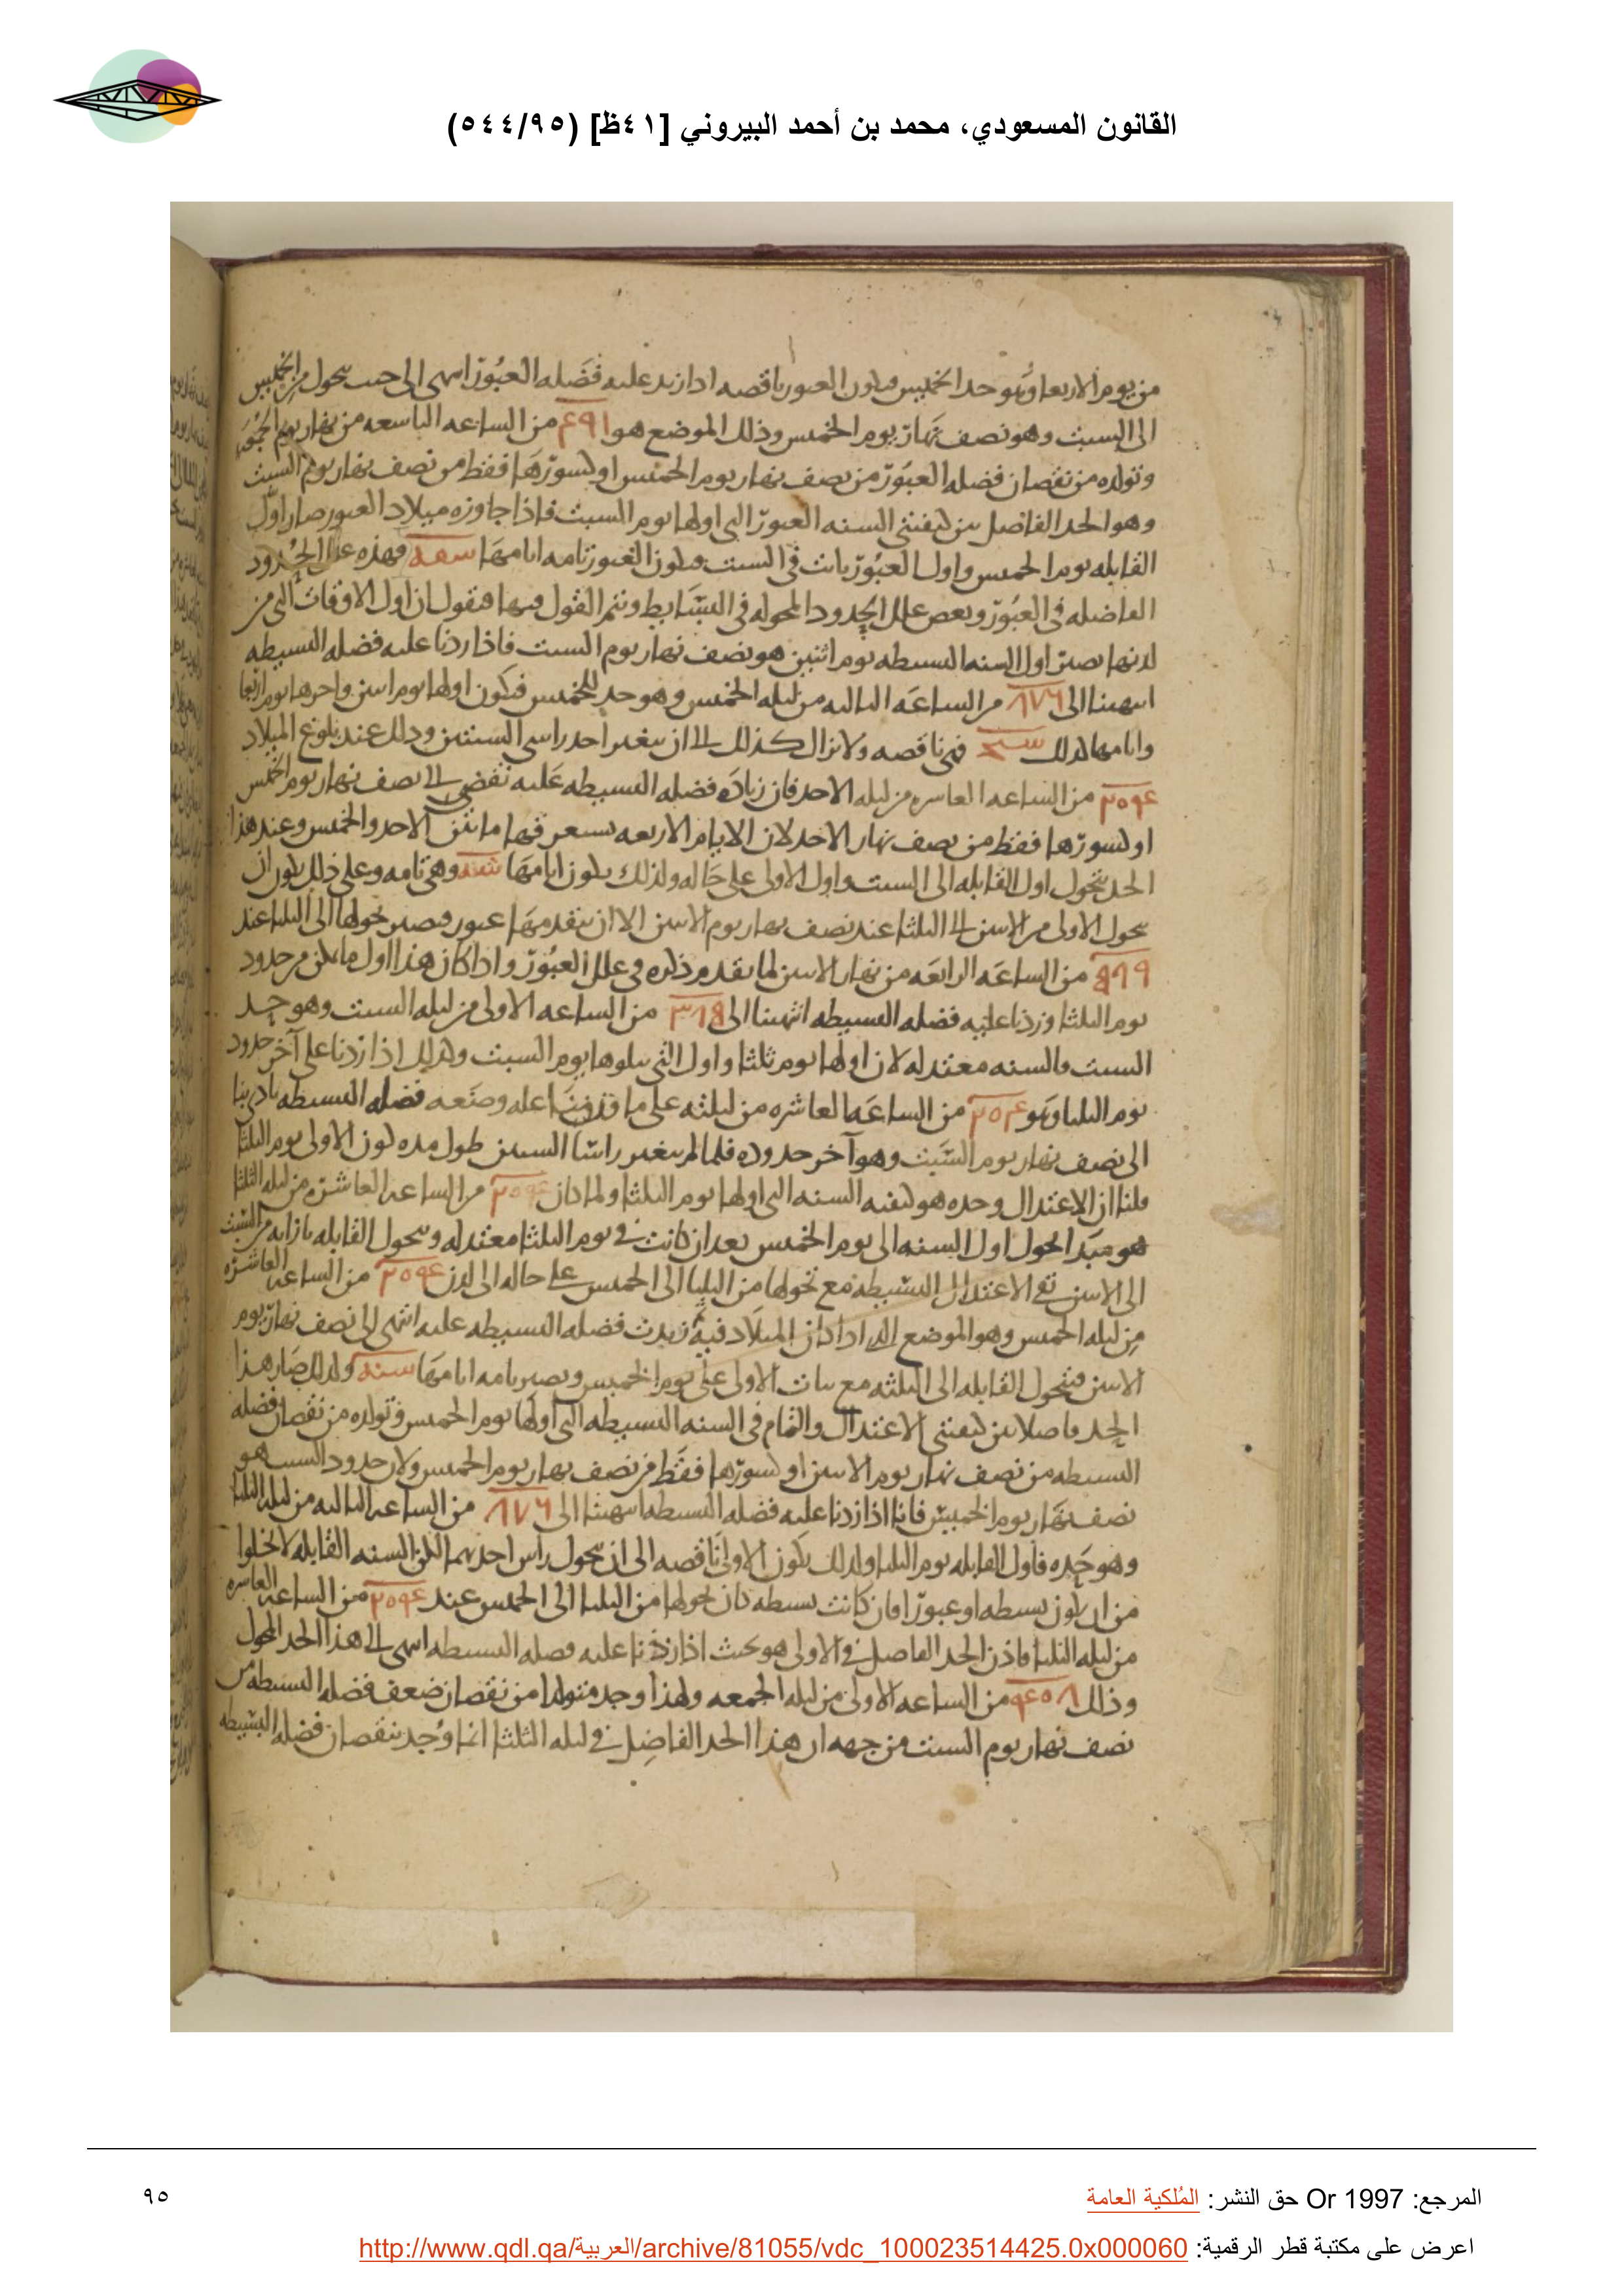 القانون المسعودي، محمد بن أحمد البيروني [٤١ظ] (٥٤٤/٩٥)
من يوم الاربعا وهو حد الخميس فيكون العبور ناقصه اذا زيد عليه فضله العبور انتهى الى حيث يتحول من الخميس
الى السبت وهو نصف نهار يوم الخميس وذلك الموضع هو ٤٩١ من الساعه التاسعه من نهار يوم الجمعه
وتولده من نقصان فضله العبور من نصف نهار يوم الخميس او كسورها فقط من نصف نهار يوم السبت
وهو الحد الفاصل بين كيفيتي السنه العبور التي اولها يوم السبت فاذا جاوزه ميلاد العبور صار اول
القابله يوم الخميس واول العبور ثابت في السبت فيكون العبور تامه ايامها شفه فهذه علل الحدود
الفاضله في العبور وبعض علل الحدود المحوله في البسايط ونتمم القول فيها فنقول ان اول الاوقات التي من
لدنها يصير اول السنه البسيطه يوم اثنين هو نصف نهار يوم السبت فاذا زدنا عليه فضله البسيطه
انتهينا الى ٨٧٦ من الساعه الثالثه من ليله الخميس وهو حد للخميس فيكون اولها يوم اثنين واخرها يوم اربعا
وايامها لذلك شنج فهي ناقصه ولا تزال كذلك الى ان يتغير احد راسي السنتين وذلك عند بلوغ الميلاد
٢٥٩٤ من الساعه العاشره من ليله الاحد فان زياده فضله البسيطه عليه تفضي الى نصف نهار يوم الخميس
او كسورها فقط من نصف نهار الاحد لان الايام الاربعه تستغرق فيها ما بين الاحد والخميس وعند هذا
الحد يتحول اول القابله الى السبت واول الاولى على حاله ولذلك يكون ايامها شنه وهي تامه وعلى ذلك يكون الى ان
يتحول الاولى من الاثنين الى الثلثا عند نصف نهار يوم الاثنين الا ان يتقدمها عبور فيصير تحولها الى الثلثا عند
من الساعه الرابعه من نهار الاثنين لما تقدم ذكره في علل العبور واذا كان هذا اول ما يمكن من حدود
يوم الثلثا وزدنا عليه فضله البسيطه انتهينا الى من الساعه الاولى من ليله السبت وهو حد
السبت والسنه معتدله لان اولها يوم ثلثا واول التي يتلوها يوم السبت وكذلك اذا زدنا على آخر حدود
يوم الثلثا وهو من الساعه العاشره من ليلته على ما قدمنا علله وصنعه فضله البسيطه تادى بنا
الى نصف نهار يوم السبت وهو آخر حدوده فلما لم يتغير راسا السنين طول مده كون الاولى يوم الثلثا
قلنا ان الاعتدال وحده هو كيفيه السنه التي اولها يوم الثلثا ولما كان من الساعه العاشره من ليله الثلثا
هو مبدا تحول اول السنه الى يوم الخميس بعد ان كانت في يوم الثلثا معتدله وتحول القابله بازايه من السبت
الى الاثنين بقي الاعتدال البسيطه مع تحولها من الثلثا الى الخميس على حاله الى لدن من الساعه العاشره
من ليله الخميس وهو الموضع الذي اذا كان الميلاد فيه زيدت فضله البسيطه عليه انتهى الى نصف نهار يوم
الاثنين فيتحول القابله الى الثلثه مع ثبات الاولى على يوم الخميس ويصير تامه ايامها شنه ولذلك صار هذا
الحد فاصلا بين كيفيتي الاعتدال والتمام في السنه البسيطه التي اولها يوم الخميس وتولده من نقصان فضله
البسيطه من نصف نهار يوم الاثنين او كسورها فقط من نصف نهار يوم الخميس ولان حدود السبت هو
نصف نهار يوم الخميس فانا اذا زدنا عليه فضله البسيطه انتهينا الى ٨٧٦ من الساعه الثالثه من ليله الثلثا
وهو حده فاول القابله يوم الثلثا ولذلك يكون الاولى ناقصه الى ان يتحول راس احديهما لكن السنه القابله لا يخلوا
من ان يكون بسيطه او عبورا فان كانت بسيطه كان تحولها من الثلثا الى الخميس عند من الساعه العاشره
من ليله الثلثا فاذن الحد الفاصل في الاولى هو بحيث اذا زدنا عليه فضله البسيطه انتهى الى هذا الحد المحول
وذلك من الساعه الاولى من ليله الجمعه ولهذا وجد متولدا من نقصان ضعف فضله البسيطه من
نصف نهار يوم السبت من جهه ان هذا الحد الفاضل في ليله الثلثا انما وجد بنقصان فضله البسيطه
المرجع: Or 1997 حق النشر: المُلكية العامة
٩٥
اعرض على مكتبة قطر الرقمية: http://www.qdl.qa/العربية/archive/81055/vdc_100023514425.0x000060